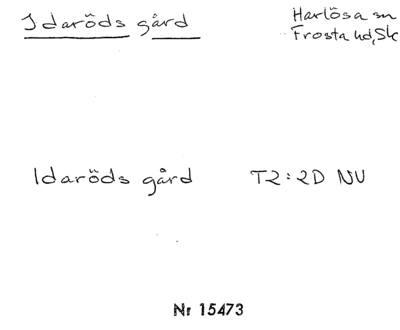 Idaröds gård
Harlösa sn
Frosta hd, Sk
Idaröds gård T2:2D NV
Nr 15473